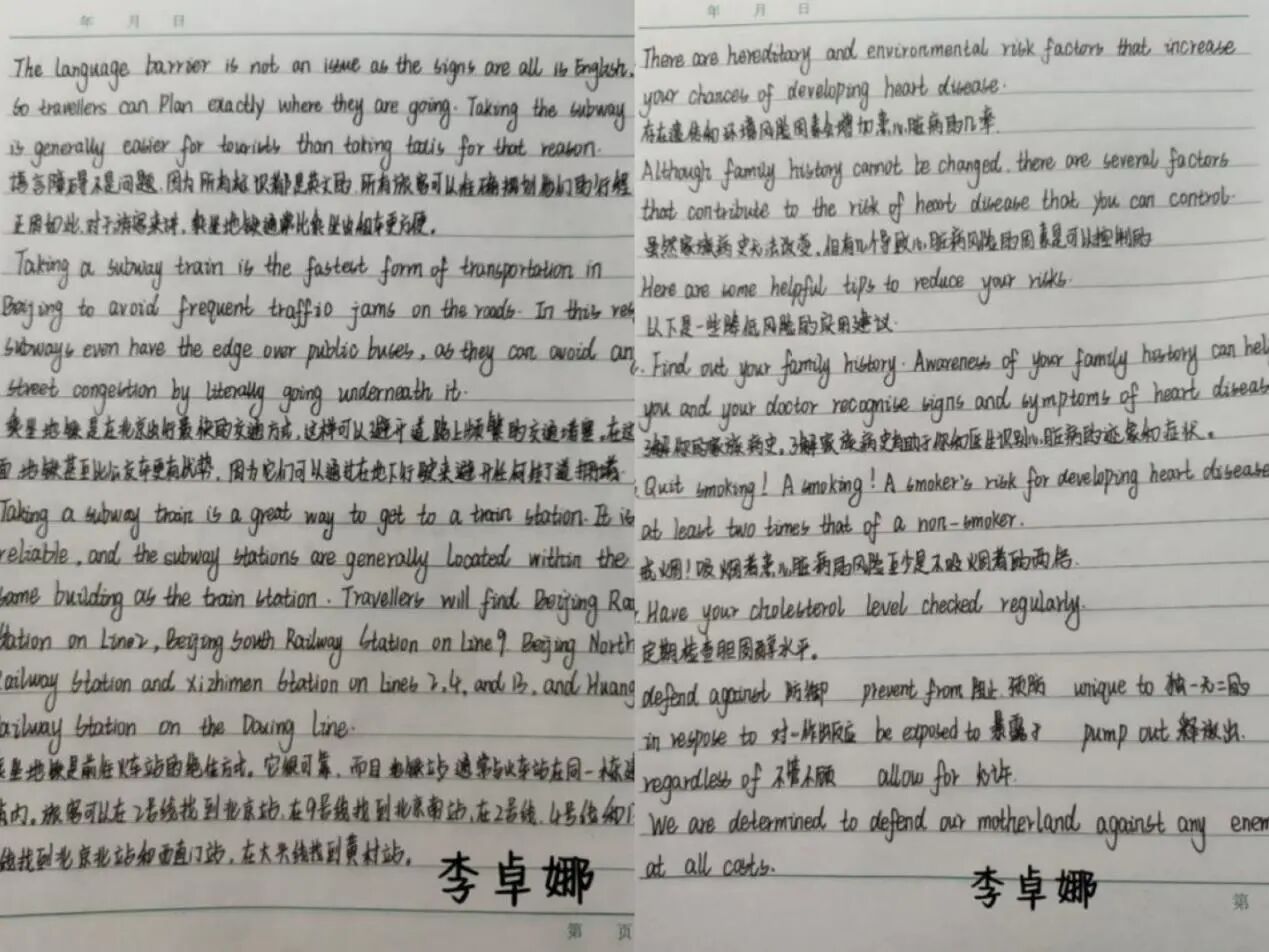 年 月 日
The language barrier is not an issue as the signs are all is English,
so travellers can Plan exactly where they are going. Taking the subway
is generally easier for tourists than taking taxis for that reason.
语言障碍不是问题，因为所有标识都是英文的，所有旅客可以准确规划他们的行程
正因如此，对于游客来讲，乘坐地铁通常比乘坐出租车更方便。
Taking a subway train is the fastest form of transportation in
Beijing to avoid frequent traffio jams on the roads. In this res
subways even have the edge over public buses, as they can avoid an
street congestion by literally going underneath it.
乘坐地铁是在北京出行最快的交通方式，这样可以避开道路上频繁的交通堵塞，在这
面 地铁甚至比公交车更有优势，因为它们可以通过在地下行驶来避开任何街道拥堵
Taking a subway train is a great way to get to a train station. It is
reliable, and the subway stations are generally Located within the
same building as the train station. Travellers will find Beijing Rai
Station on Line2, Beijing South Railway Station on Line 9. Beijing North
Railway Station and Xizhimen Station on Lines 2,4, and 13, and Huang
Railway Station on the Daxing Line.
乘坐地铁是前往火车站的绝佳方式。它很可靠，而且地铁站通常与火车站在同一栋建
筑内。旅客可以在2号线找到北京站，在9号线找到北京南站，在2号线、4号线和1
线找到北京北站和西直门站，在大兴线找到黄村站。
李卓娜
第 页
年 月 日
There are hereditary and environmental risk factors that increase
your chances of developing heart disease.
存在遗传和环境风险因素会增加患心脏病的几率
Although family history cannot be changed, there are several factors
that contribute to the risk of heart disease that you can control.
虽然家族病史无法改变，但有几个导致心脏病风险的因素是可以控制的
Here are some helpful tips to reduce your risks.
以下是一些降低风险的实用建议.
Find out your family history. Awareness of your family history can hel
you and your doctor recognise signs and symptoms of heart diseas
了解你的家族病史。了解家族病史有助于你和医生识别心脏病的迹象和症状。
Quit smoking! A smoking! A smoker's risk for developing heart disease
at least two times that of a non-smoker.
戒烟！吸烟者患心脏病的风险至少是不吸烟者的两倍.
Have your cholesterol level checked regularly.
定期检查胆固醇水平。
defend against 防御 prevent from 阻止、预防 unique to 独一无二的
in respose to 对一作出反应 be exposed to 暴露于 pump out 释放出
regardless of 不管不顾 allow for 允许
We are determined to defend our motherland against any enem
at all costs.
李卓娜
第